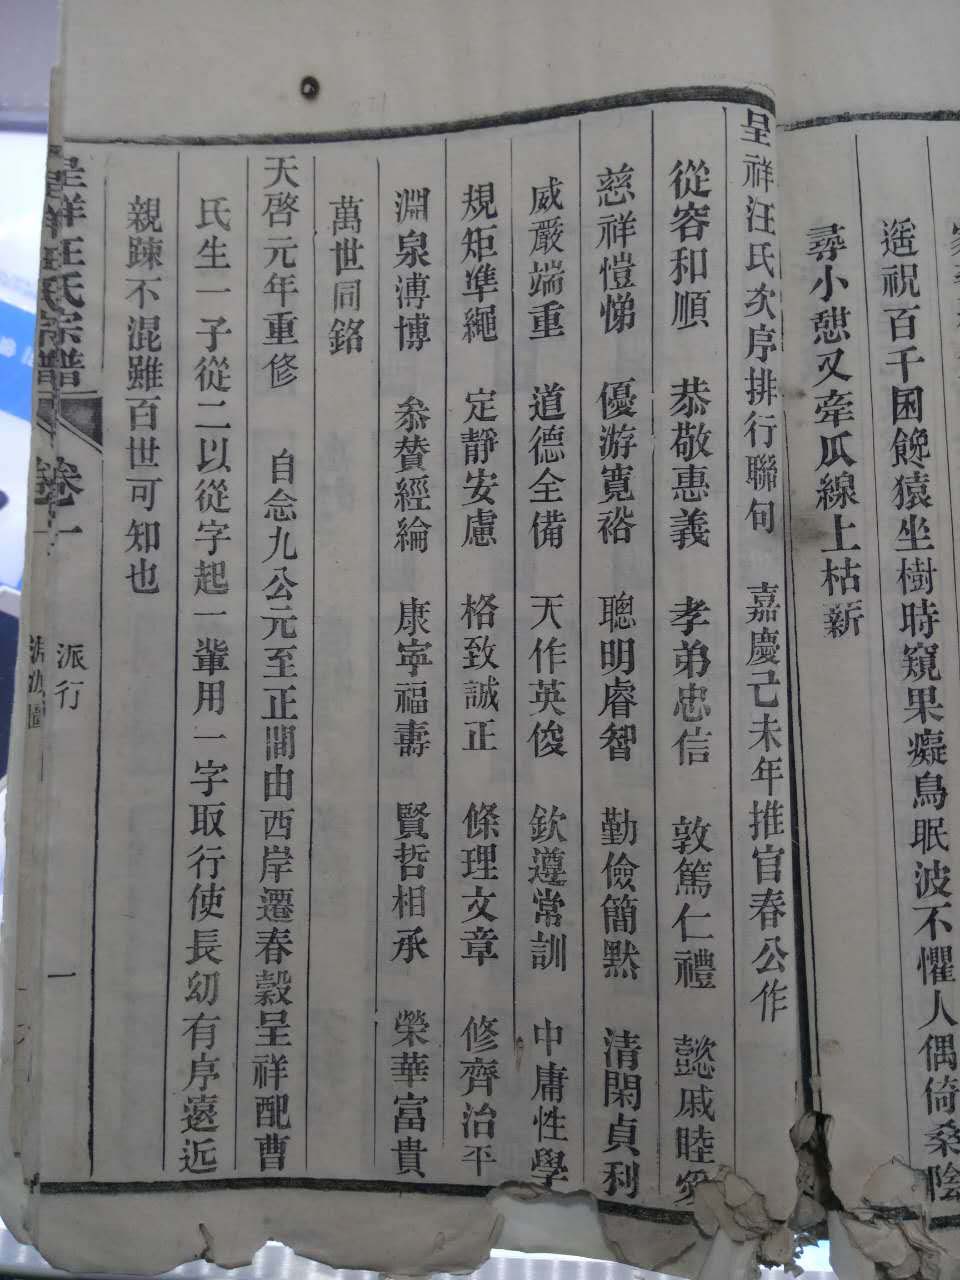 遥祝百千囷饞猿坐樹時窺果癡鳥眠波不懼人偶倚桑陰
尋小憇又牽瓜線上枯新
呈祥汪氏次序排行聯句　嘉慶己未年推官春公作
從容和順　恭敬惠義　孝弟忠信　敦篤仁禮　懿戚睦
慈祥愷悌　優游寬裕　聰明睿智　勤儉簡默　清閑貞利
威嚴端重　道德全備　天作英俊　欽遵常訓　中庸性學
規矩準繩　定靜安慮　格致誠正　條理文章　修齊治平
淵泉溥博　叅贊經綸　康寧福壽　賢哲相承　榮華富貴
萬世同銘
天啓元年重修　自念九公元至正間由西岸遷春穀呈祥配曹
氏生一子從二以從字起一輩用一字取行使長幼有序遠近
親踈不混雖百世可知也
呈祥汪氏宗譜　卷一　派行　一